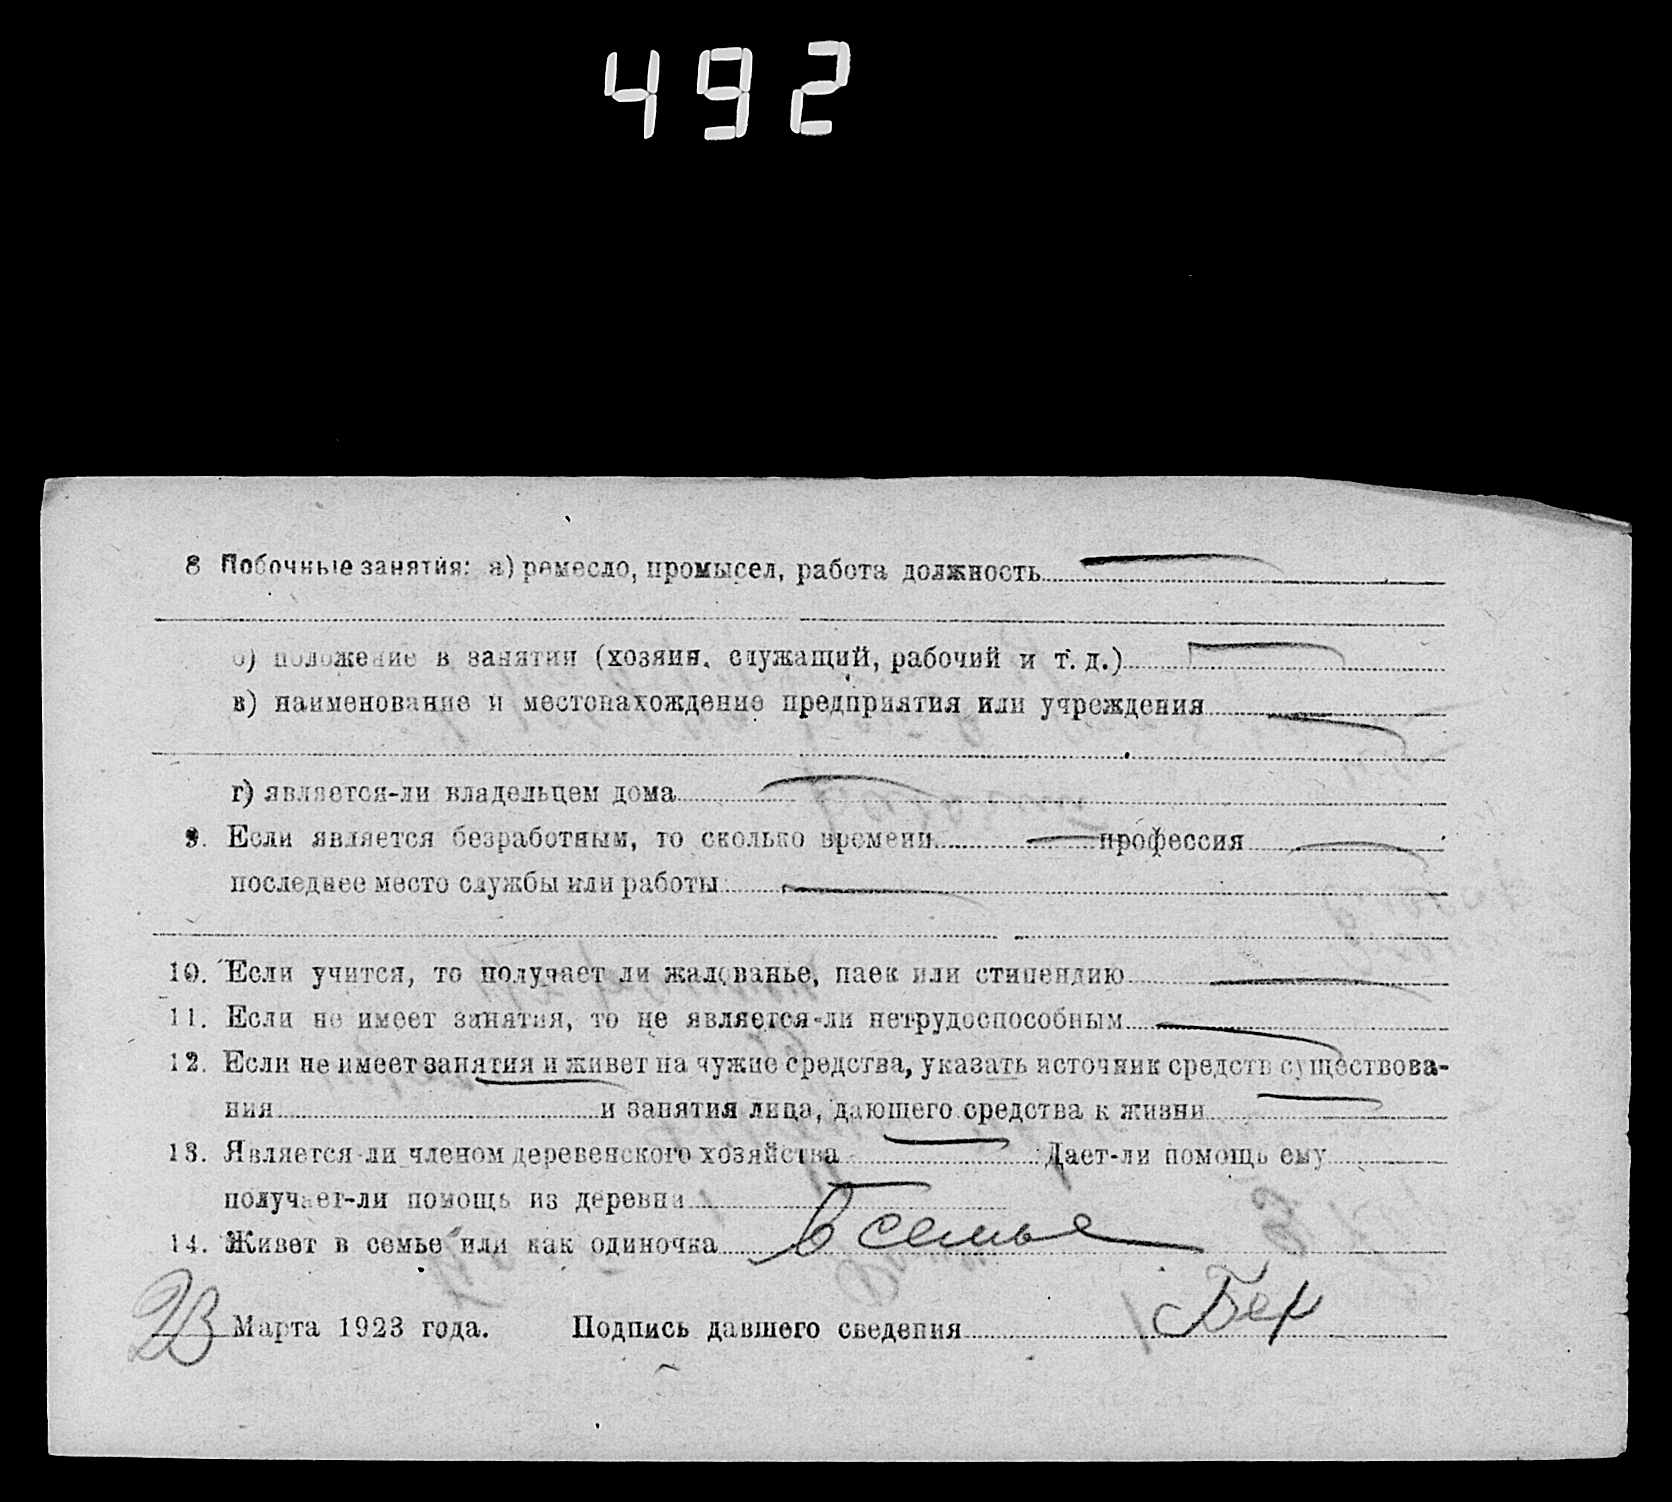 492
8 Побочные занятия: а) ремесло, промысел, работа должность
б) положение в занятии (хозяин, служащий, рабочий и т. д.)
в) наименование и местонахождение предприятия или учреждения
г) является-ли владельцем дома
9. Если является безработным, то сколько времени профессия
последнее место службы или работы
10. Если учится, то получает ли жалованье, паек или стипендию
11. Если не имеет занятия, то не является-ли нетрудоспособным
12. Если не имеет занятия и живет на чужие средства, указать источник средств существова-
ния и занятия лица, дающего средства к жизни
13. Является-ли членом деревенского хозяйства Дает-ли помощь ему
получает-ли помощь из деревни
14. Живет в семье или как одиночка в семье
23 Марта 1923 года. Подпись давшего сведения Бек